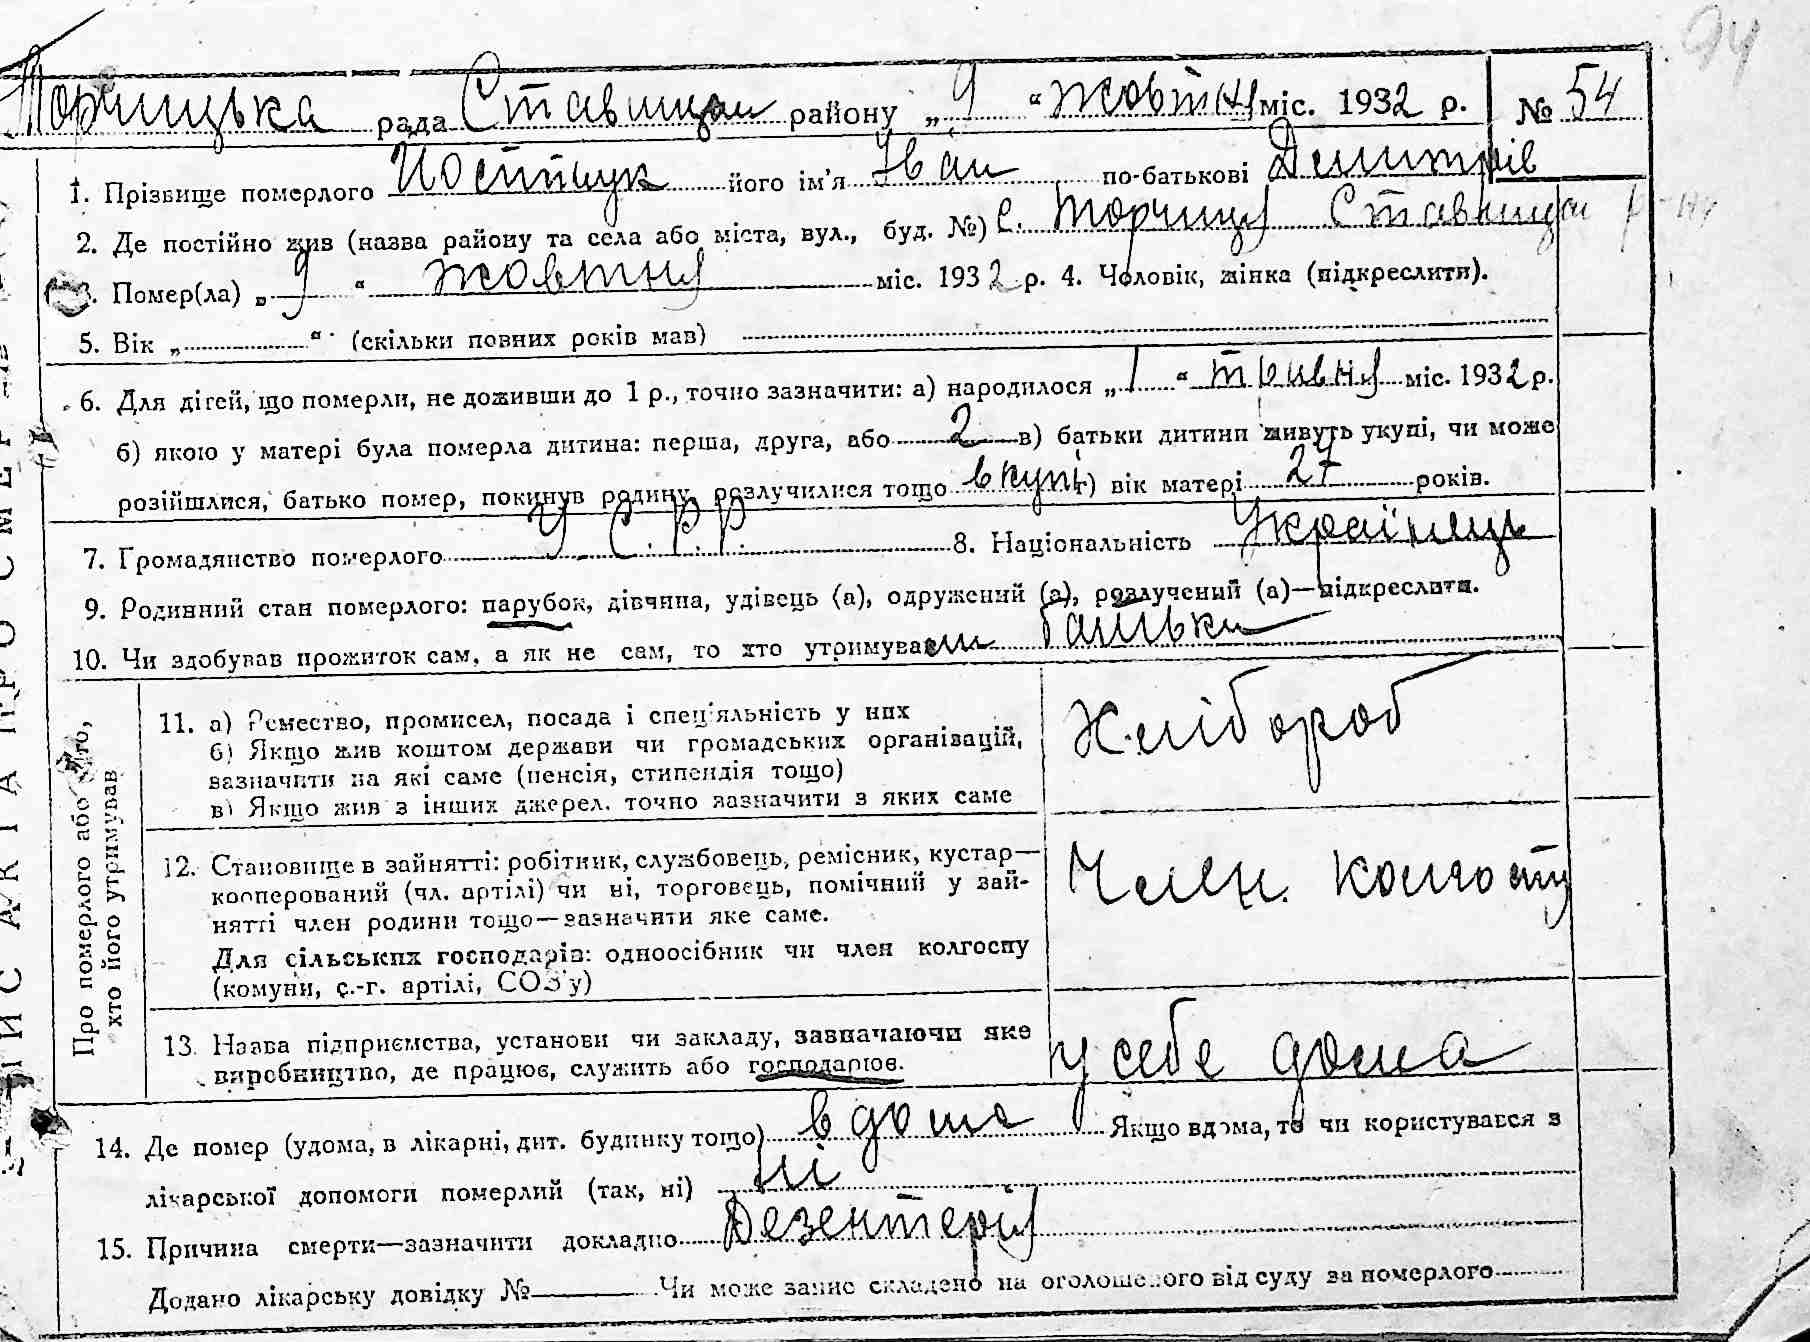 94
Торчицька рада Ставищан району „9“ жовтня міс. 1932 р. № 54
1. Прізвище померлого Костюк його ім'я Іван по-батькові Дмитрів
2. Де постійно жив (назва району та села або міста, вул., буд. №) с. Торчиця Ставищан р-ну
3. Помер(ла) „9“ жовтня міс. 1932 р. 4. Чоловік, жінка (підкреслити).
5. Вік „ “ (скільки повних років мав)
6. Для дітей, що померли, не доживши до 1 р., точно зазначити: а) народилося „1“ травня міс. 1932 р.
б) якою у матері була померла дитина: перша, друга, або 2 в) батьки дитини живуть укупі, чи може
розійшлися, батько помер, покинув родину, розлучилися тощо вкупі г) вік матері 27 років.
7. Громадянство померлого У.С.Р.Р. 8. Національність Українець
9. Родинний стан померлого: парубок, дівчина, удівець (а), одружений (а), розлучений (а)—підкреслити.
10. Чи здобував прожиток сам, а як не сам, то хто утримували батьки
Про померлого або того,
хто його утримував
11. а) Ремество, промисел, посада і спеціяльність у них
б) Якщо жив коштом держави чи громадських організацій,
зазначити на які саме (пенсія, стипендія тощо)
в) Якщо жив з інших джерел, точно зазначити з яких саме
Хлібороб
12. Становище в зайнятті: робітник, службовець, ремісник, кустар—
кооперований (чл. артілі) чи ні, торговець, помічний у зай-
нятті член родини тощо—зазначити яке саме.
Для сільських господарів: одноосібник чи член колгоспу
(комуни, с.-г. артілі, СОЗ'у)
Член. колгоспу
13. Назва підприємства, установи чи закладу, зазначаючи яке
виробництво, де працює, служить або господарює.
у себе дома
14. Де помер (удома, в лікарні, дит. будинку тощо) вдома Якщо вдома, то чи користувався з
лікарської допомоги померлий (так, ні) ні
15. Причина смерти—зазначити докладно Дезентерія
Додано лікарську довідку № Чи може запис складено на оголошеного від суду за померлого